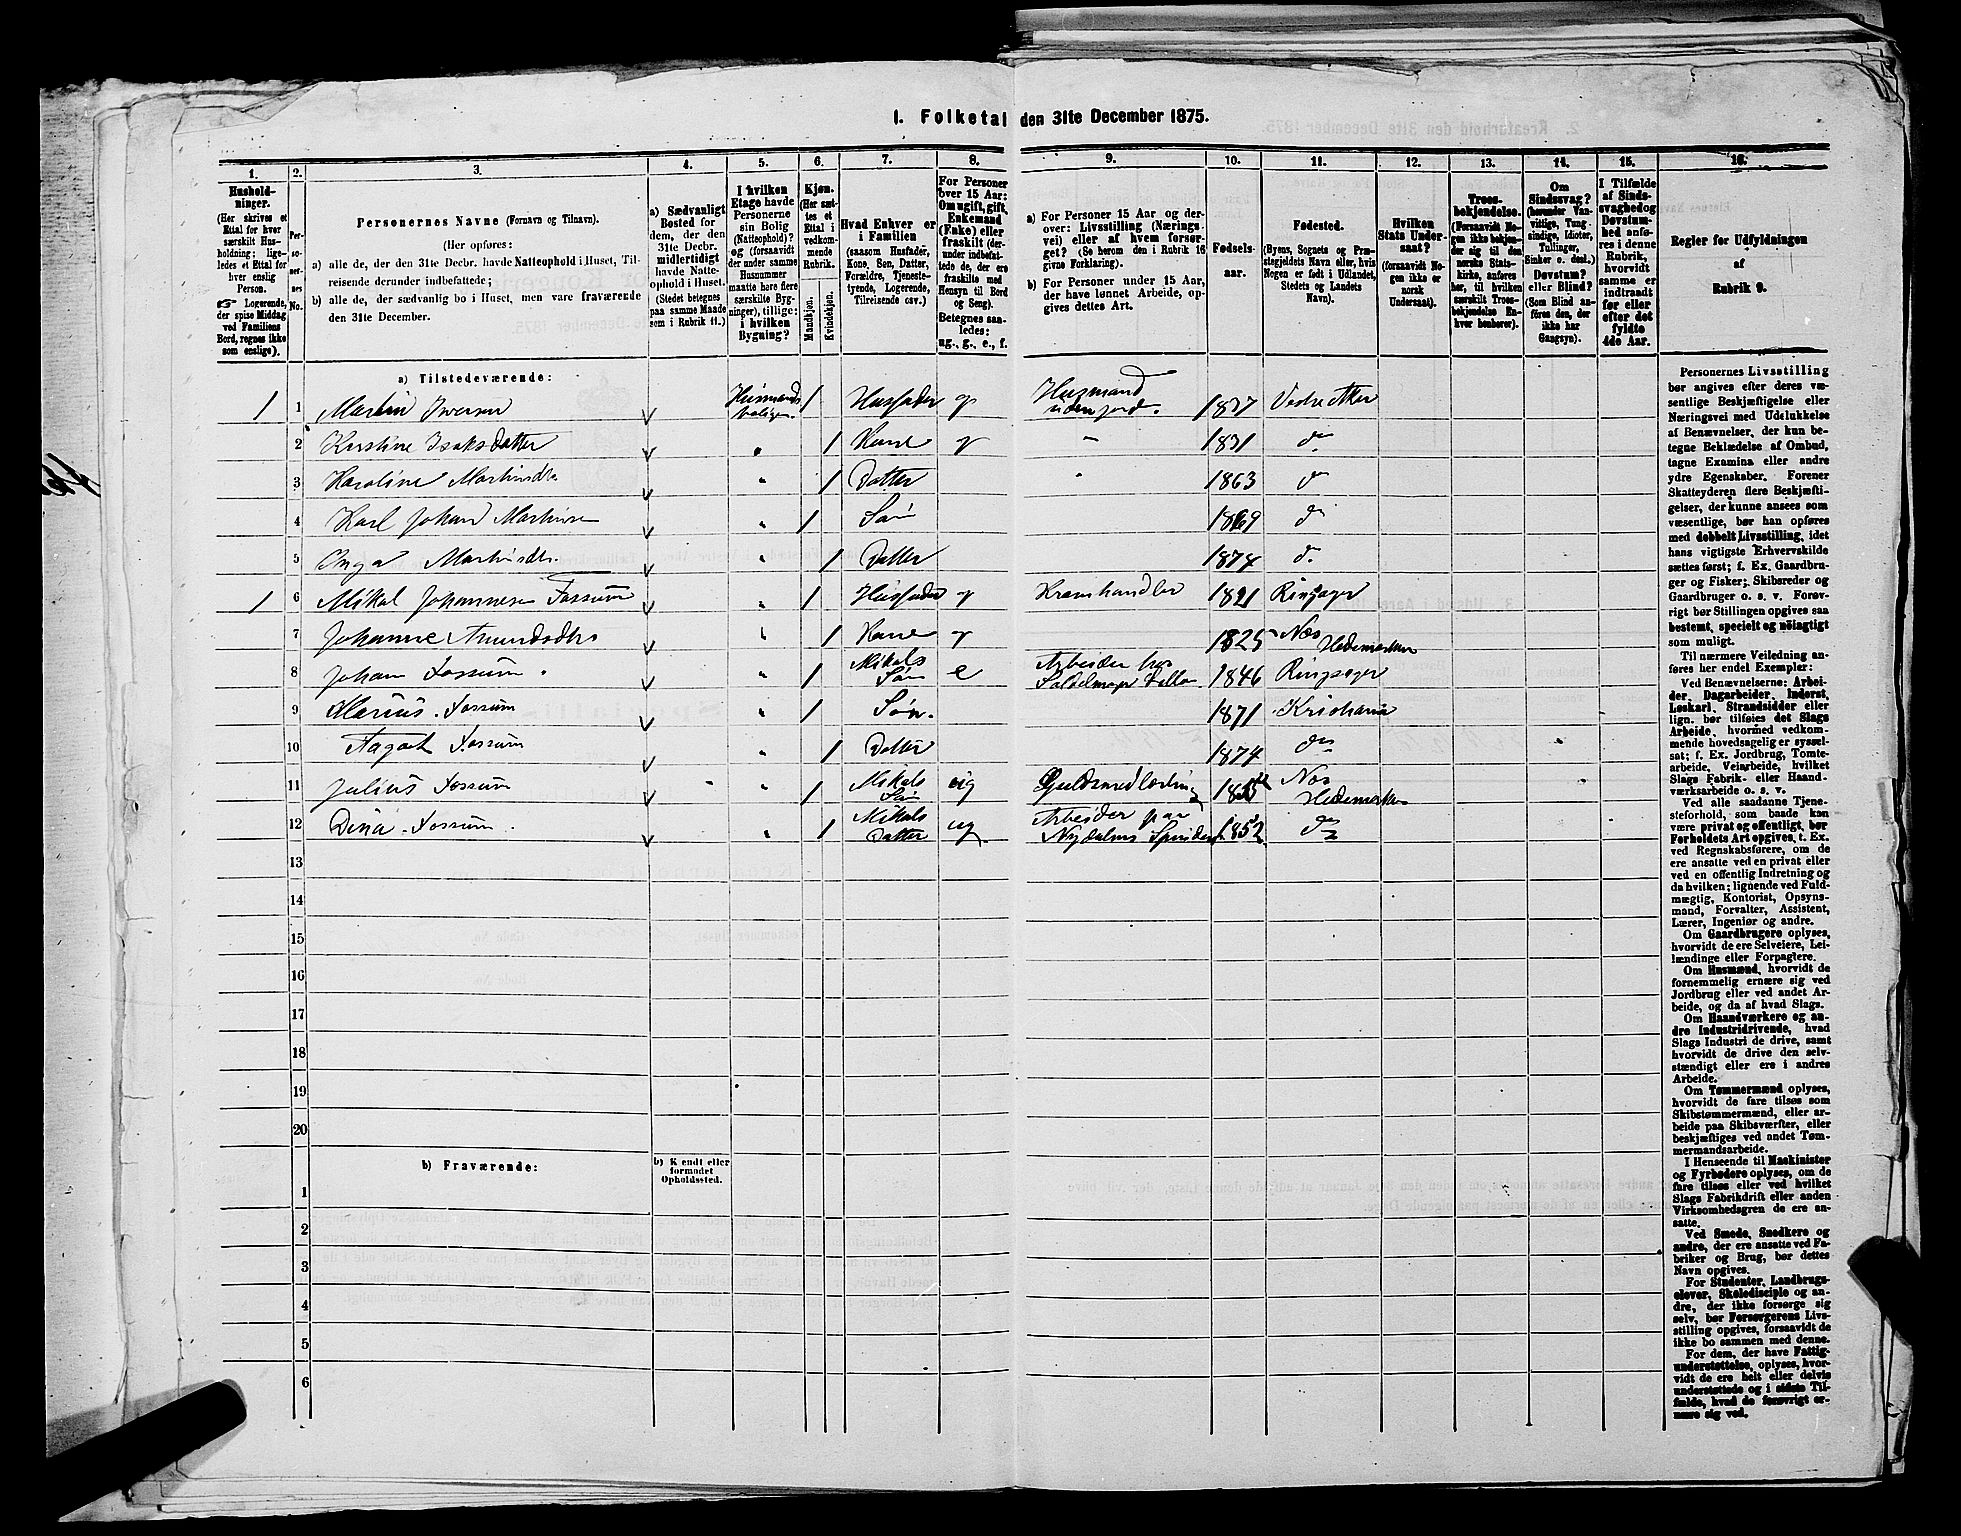 1. Folketal den 31te December 1875.
1.
2.
3.
4.
5.
6.
7.
8.
9.
10.
11.
12.
13.
14.
15.
16.
Hushold-
ninger.
(Her skrives et
Ettal for hver
særskilt Hus-
holdning; lige-
ledes et Ettal for
hver enslig
Person.
☞ Logerende,
der spise Middag
ved Familiens
Bord, regnes ikke
som enslige).
Per-
so-
ner-
nes
No.
Personernes Navne (Fornavn og Tilnavn).
(Her opføres:
a) alle de, der den 31te Decbr. havde Natteophold i Huset, Til-
reisende derunder indbefattede;
b) alle de, der sædvanlig bo i Huset, men vare fraværende
den 31te December.
a) Sædvanligt
Bosted for
dem, der den
31te Decbr.
midlertidigt
havde Natte-
ophold i Huset.
(Stedet betegnes
paa samme Maade
som i Rubrik 11.)
I hvilken
Etage havde
Personerne
sin Bolig
(Natteophold)?
og (forsaavidt
der under samme
Husnummer
maatte høre flere
særskilte Byg-
ninger), tillige:
i hvilken
Bygning?
Kjøn.
(Her sæt-
tes et
Ettal i
vedkom-
mende
Rubrik.
Mandkjøn.
Kvindekjøn.
Hvad Enhver er
i Familien
(saasom Husfader,
Kone, Søn, Datter,
Forældre, Tjeneste-
tyende, Logerende,
Tilreisende osv.)
For Personer
over 15 Aar:
Om ugift, gift,
Enkemand
(Enke) eller
fraskilt (der-
under indbefat-
tede de, der ere
fraskilte med
Hensyn til Bord
og Seng).
Betegnes saa-
ledes:
ug., g., e., f.
a) For Personer 15 Aar og der-
over: Livsstilling (Nærings-
vei) eller af hvem forsør-
get? (Se herom den i Rubrik 16
givne Forklaring).
b) For Personer under 15 Aar,
der have lønnet Arbeide, op-
gives dettes Art.
Fødsels-
aar.
Fødested.
(Byens, Sognets og Præ-
stegjeldets Navn eller, hvis
Nogen er født i Udlandet,
Stedets og Landets
Navn).
Hvilken
Stats Under-
saat?
(forsaavidt No-
gen ikke er
norsk
Undersaat).
Troes-
bekjendelse.
(Forsaavidt No-
gen ikke bekjen-
der sig til den
norske Stats-
kirke, anføres
her, til hvilken
særskilt Troes-
bekjendelse En-
hver henhører).
Om
Sindssvag?
(herunder Van-
vittige, Tung-
sindige, Idioter,
Tullinger,
Sinker o. desl.)
Døvstum?
eller Blind?
(Som Blind an-
føres den, der
ikke har
Gangsyn).
I Tilfælde
af Sinds-
svaghed og
Døvstum-
hed anfø-
res i denne
Rubrik,
hvorvidt
samme er
indtraadt
før eller
efter det
fyldte
4de Aar.
Regler for Udfyldningen
af
Rubrik 9.
a) Tilstedeværende:
1 1 Martin Iversen v Husmands boligen 1 Husfader g Husmand uden jord. 1837 Vestre Aker
2 Kirstine Isaksdatter v " 1 Kone g " 1831 do
3 Karoline Martinsdtr v " 1 Datter " 1863 do
4 Karl Johan Martinsen v " 1 Søn 1869 do
5 Inga Martinsdtr. v " 1 Datter 1874 do
1 6 Mikal Johannesen Fossum v " 1 Husfader g Kramhandler 1821 Ringsager
7 Johanne Amundsdtr v " 1 Kone g 1825 Næs Hedemarken
8 Johan Fossum v " 1 Mikals Søn e Arbeider hos 1846 Ringsager
9 Marius Fossum v " 1 Søn. 1871 Kristiania
10 Fossum v " 1 Datter 1874 do
11 Julius Fossum v " 1 Mikals Søn ug Guldsmedlærling Næs Hedemarken
12 Dina Fossum v " 1 Mikals Datter ug Arbeider paa Nydalens Spinderi 1852 do
13
14
15
16
17
18
19
20
b) Fraværende:
b) Kjendt eller
formodet
Opholdssted.
1
2
3
4
5
6
Personernes Livsstilling
bør angives efter deres væ-
sentlige Beskjæftigelse eller
Næringsvei med Udelukkelse
af Benævnelser, der kun be-
tegne Beklædelse af Ombud,
tagne Examina eller andre
ydre Egenskaber. Forener
Skatteyderen flere Beskjæfti-
gelser, der kunne ansees som
væsentlige, bør han opføres
med dobbelt Livsstilling, idet
hans vigtigste Erhvervskilde
sættes først; f. Ex. Gaardbru-
ger og Fisker; Skibsreder og
Gaardbruger o. s. v. Forøv-
rigt bør Stillingen opgives saa
bestemt, specielt og nøiagtigt
som muligt.
Til nærmere Veiledning an-
føres her endel Exempler:
Ved Benævnelserne: Arbei-
der, Dagarbeider, Inderst,
Løskarl, Strandsidder eller
lign. bør tilføies det Slags
Arbeide, hvormed vedkom-
mende hovedsagelig er syssel-
sat; f. Ex. Jordbrug, Tomte-
arbeide, Veiarbeide, hvilket
Slags Fabrik- eller Haand-
værksarbeide o. s. v.
Ved alle saadanne Tjene-
steforhold, som baade kan
være privat og offentligt, bør
Forholdets Art opgives, t. Ex.
ved Regnskabsførere, om de
ere ansatte ved en privat eller
ved en offentlig Indretning og
da hvilken; lignende ved Fuld-
mægtig, Kontorist, Opsyns-
mand, Forvalter, Assistent,
Lærer, Ingeniør og andre.
Om Gaardbrugere oplyses,
hvorvidt de ere Selveiere, Lei-
lændinge eller Forpagtere.
Om Husmænd, hvorvidt de
fornemmelig ernære sig ved
Jordbrug eller ved andet Ar-
beide, og da af hvad Slags.
Om Haandværkere og an-
dre Industridrivende, hvad
Slags Industri de drive, samt
hvorvidt de drive den selv-
stændigt eller ere i andres
Arbeide.
Om Tømmermænd oplyses,
hvorvidt de fare tilsøs som
Skibstømmermænd, eller ar-
beide paa Skibsværfter, eller
beskjæftiges ved andet Tøm-
mermandsarbeide.
I Henseende til Maskinister
og Fyrbødere oplyses, om de
fare tilsøs eller ved hvilket
Slags Fabrikdrift eller anden
Virksomhedsgren de ere an-
satte.
Ved Smede, Snedkere og
andre, der ere ansatte ved Fa-
briker og Brug, bør dettes
Navn opgives.
For Studenter, Landbrugs-
elever, Skoledisciple og an-
dre, der ikke forsørge sig
selv, bør Forsørgerens Livs-
stilling opgives, forsaavidt de
ikke bo sammen med denne.
For dem, der have Fattig-
understøttelse, oplyses, hvor-
vidt de ere helt eller delvis
understøttede og i sidste Til-
fælde, hvad de forøvrigt er-
nære sig ved.